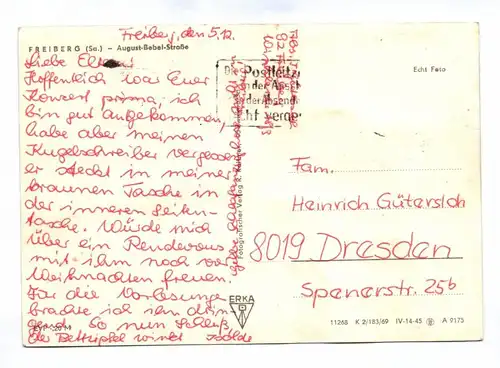 Freiberg, den 5.12.
FREIBERG (Sa.) – August-Bebel-Straße
Liebe Eltern!
Hoffentlich war Euer
Konzert prima, ich
bin gut angekommen,
habe aber meinen
Kugelschreiber vergessen
er steckt in meiner
braunen Tasche in
der inneren Seiten-
tasche. Würde mich
über ein Rendevous
mit ihm noch vor
Weihnachten freuen.
Für die Vorlesungen
brauche ich ihn drin-
gend. So nun Schluß
der Bettzipfel winkt
Die Postleitz
in der Ansch
der Absend
cht verge
Fotografischer Verlag R.
ERKA
Echt Foto
Fam.
Heinrich Gütersloh
8019 Dresden
Spenerstr. 25b
11268 K 2/183/69 IV-14-45 A 9175